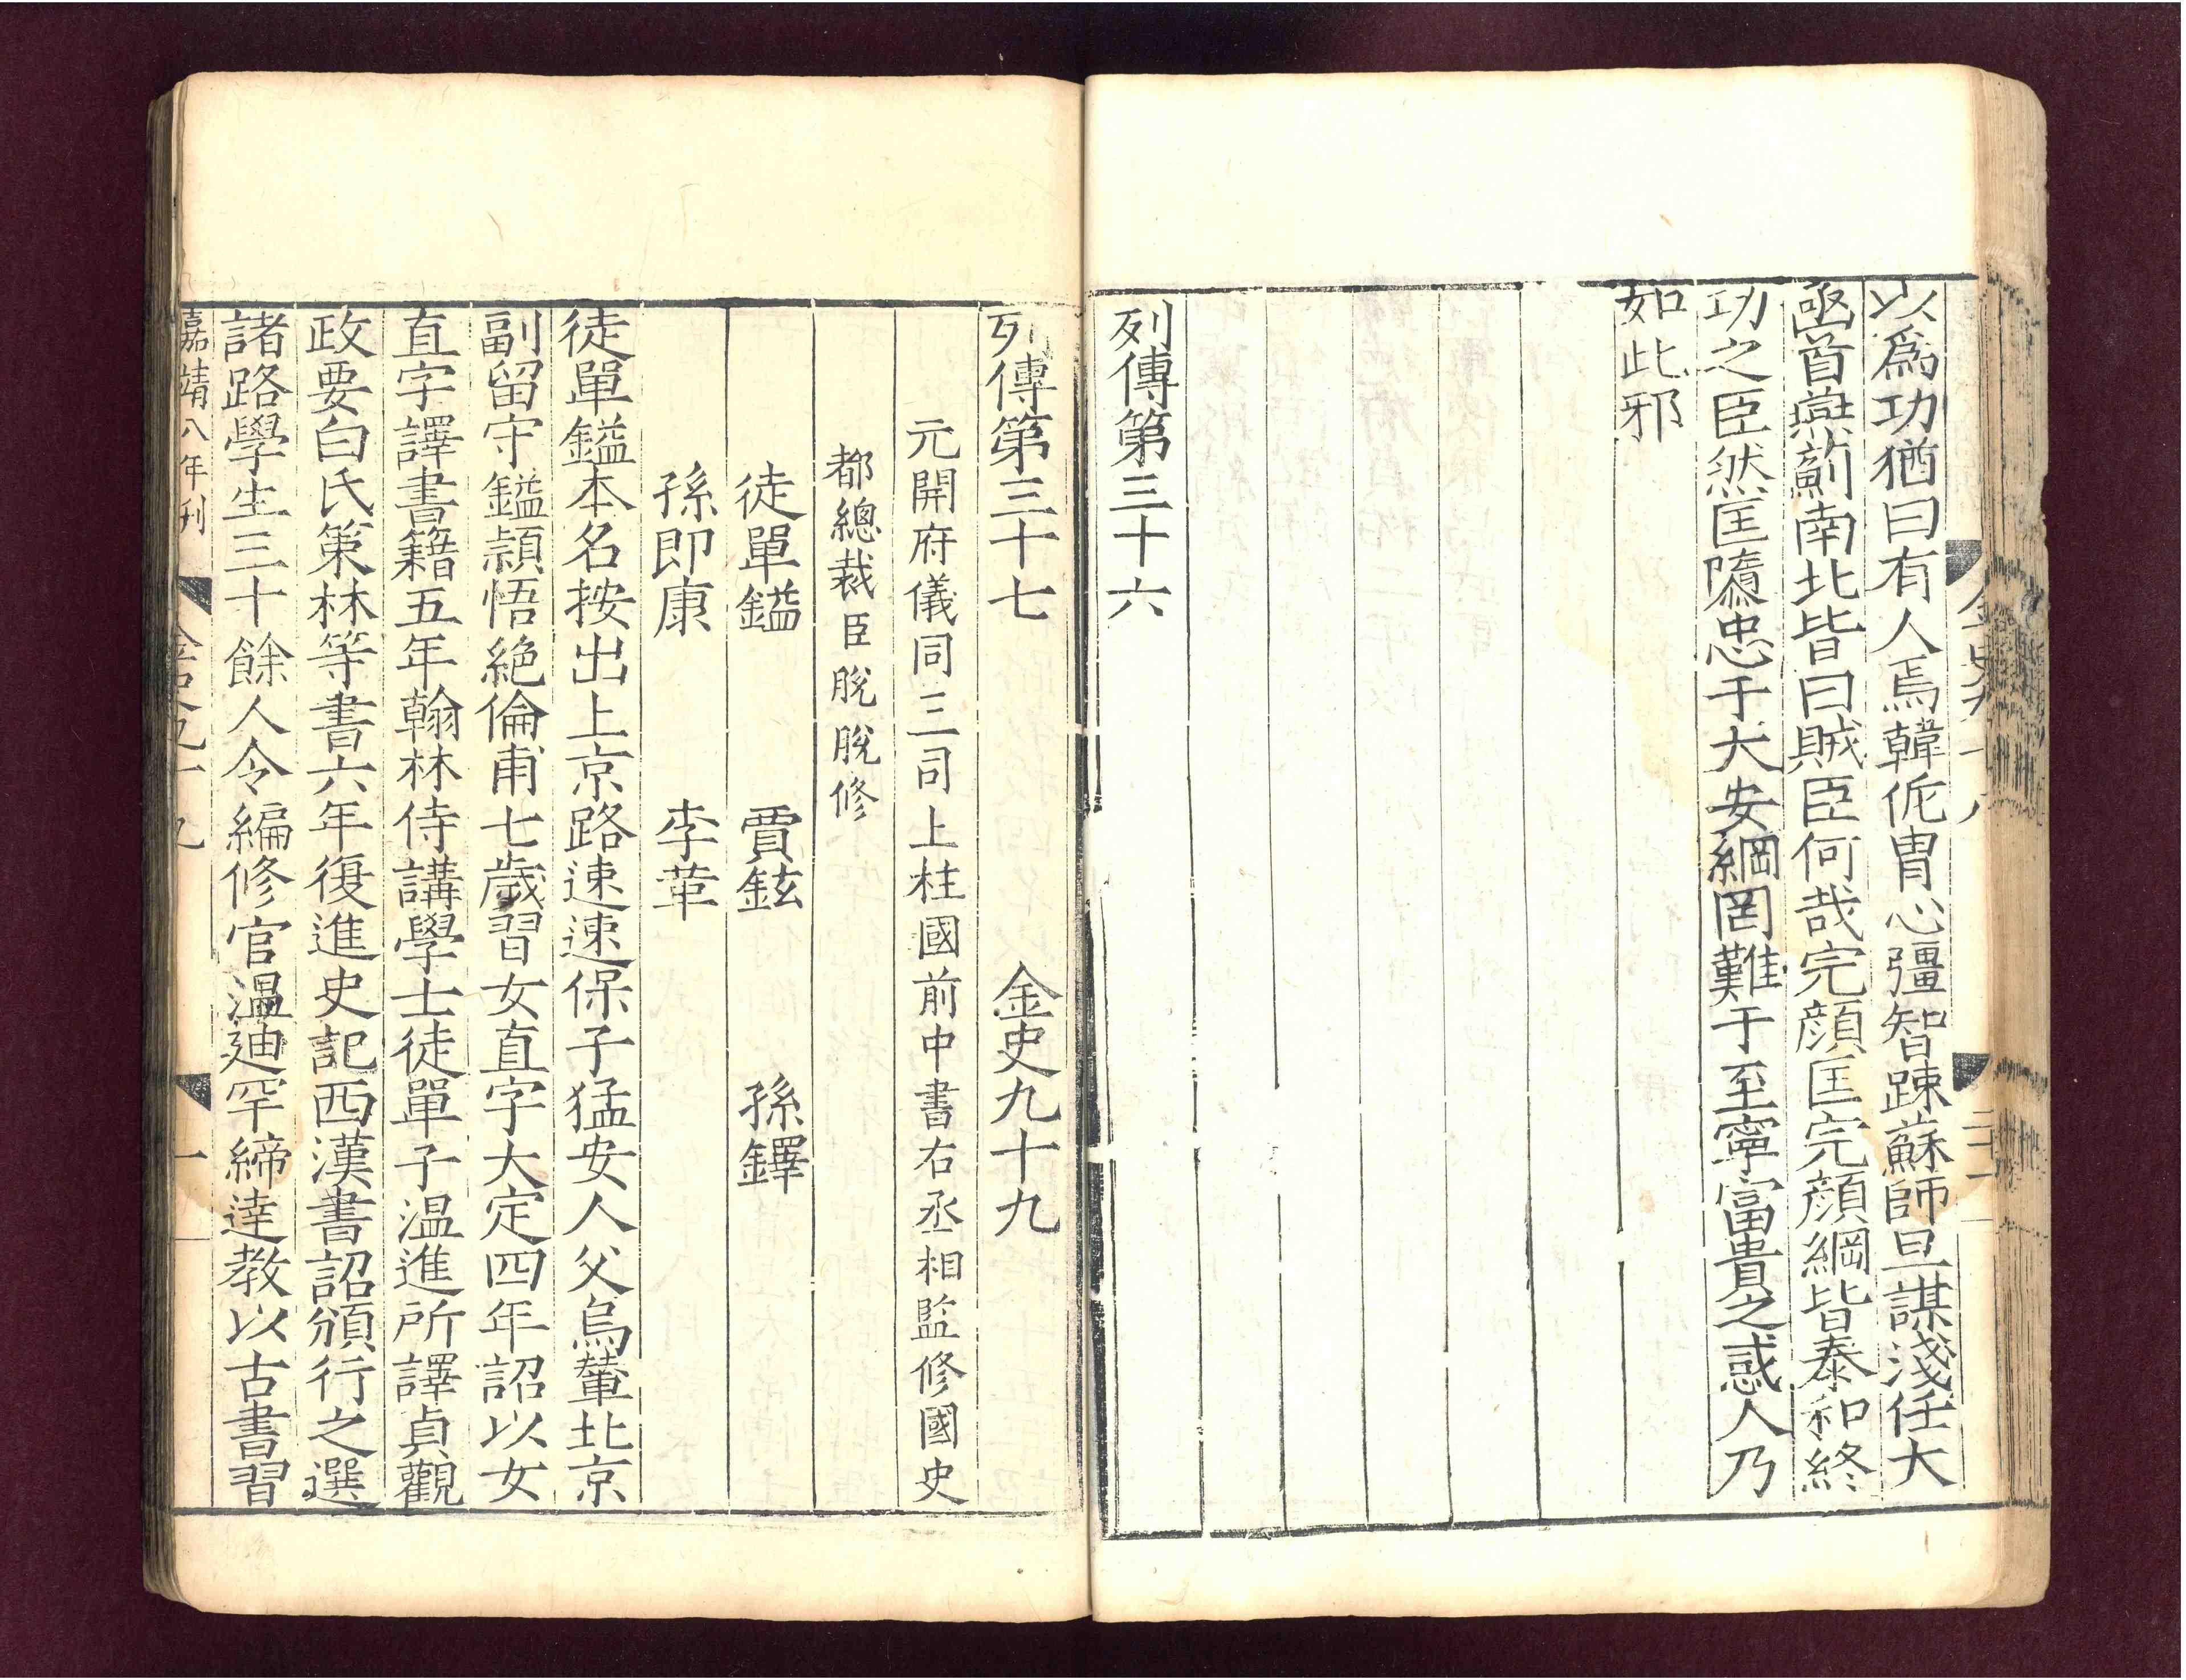 以爲功猶曰有人焉韓侂冑心彊智踈蘇師旦謀淺任大
函首與薊南北皆曰賊臣何哉完顏匡完顏綱皆泰和終
功之臣然匡隳忠于大安綱罔難于至寧富貴之惑人乃
如此邪
列傳第三十六
列傳第三十七 金史九十九
元開府儀同三司上柱國前中書右丞相監修國史
都總裁臣脫脫修
徒單鎰 賈鉉 孫鐸
孫即康 李革
徒單鎰本名按出上京路速速保子猛安人父烏輦北京
副留守鎰頴悟絶倫甫七歲習女直字大定四年詔以女
直字譯書籍五年翰林侍講學士徒單子溫進所譯貞觀
政要白氏策林等書六年復進史記西漢書詔頒行之選
諸路學生三十餘人令編修官溫迪罕締達教以古書習
嘉靖八年刊 金史九十九 一